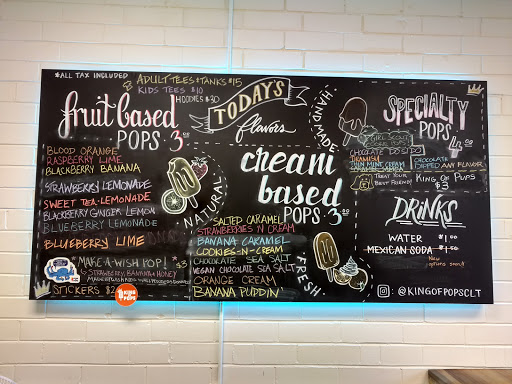 *ALL TAX INCLUDED
ADULT TEES + TANKS $15
KIDS TEES $10
HOODIES $30
fruit based
POPS 3.00
BLOOD ORANGE
RASPBERRY LIME
BLACKBERRY BANANA
STRAWBERRY LEMONADE
SWEET TEA-LEMONADE
BLACKBERRY GINGER LEMON
BLUEBERRY LEMONADE
BLUEBERRY LIME
MAKE-A-WISH POP! $3
STRAWBERRY, BANANA & HONEY
STICKERS $2
TODAY'S
flavors
HANDMADE
NATURAL
FRESH
cream
based
POPS 3.00
SALTED CARAMEL
STRAWBERRIES N CREAM
BANANA CARAMEL
COOKIES-N-CREAM
CHOCOLATE SEA SALT
VEGAN CHOCOLATE SEA SALT
ORANGE CREAM
BANANA PUDDIN'
SPECIALTY
POPS 4.00
CHOCOLATE
TIRAMISU
THIN MINT CREME
CHOCOLATE
DIPPED ANY FLAVOR
TREAT YOUR
BEST FRIEND!
KING OF PUPS
$3
DRINKS
WATER $1.00
MEXICAN SODA
New
options soon!!
: @KINGOFPOPSCLT